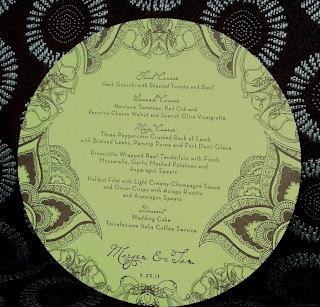 First Course
Herb Gnocchi with Roasted Tomato and Basil
Second Course
Heirloom Tomatoes, Red Oak and
Pecorino Cheese Walnut and Spanish Olive Vinaigrette
Main Course
Three Peppercorn Crusted Rack of Lamb
with Braised Leeks, Parsnip Puree and Pact Choy
Proscuitto Wrapped Beef Tenderloin with Fresh
Mozzarella, Garlic Mashed Potatoes and
Asparagus Spears
Halibut Filet with Light Creamy Champagne Sauce
and Onion Crisps with Asiago Risotto
and Asparagus Spears
Dessert
Wedding Cake
Torrefazione Italia Coffee Service
&
6.25.11